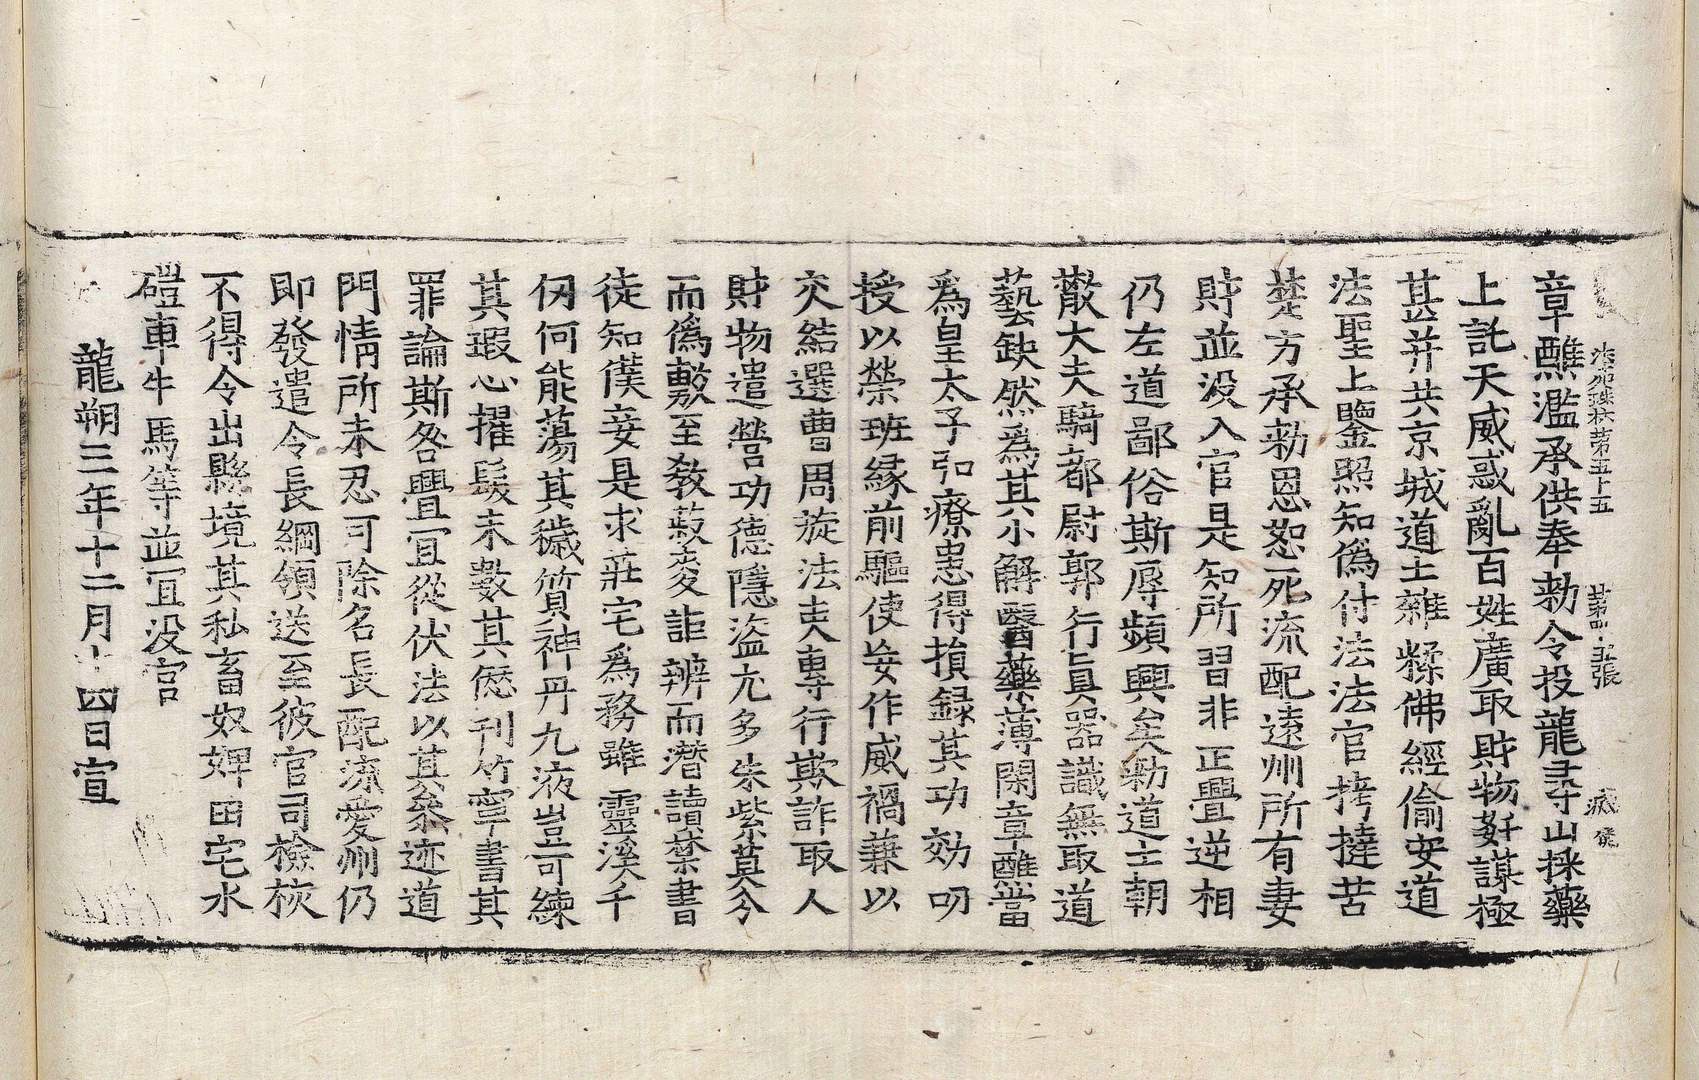 法苑珠林第五十五 第四十五張 㢘
章醮濫承供奉勑令投龍尋山採藥
上託天威惑亂百姓廣取財物姧謀極
甚并共京城道士雜糅佛經偷安道
法聖上鑒照知偽付法法官拷撻苦
楚方承勑恩恕死流配遠州所有妻
財並没入官是知所習非正舋逆相
仍左道鄙俗斯辱頻興矣勑道士朝
散大夫騎都尉郭行真器識無取道
藝缺然爲其小解醫藥薄閑章醮當
爲皇太子弘療患得損録其功効叨
授以榮班緣前驅使妄作威禍兼以
交結選曹周旋法吏專行欺詐取人
財物遣營功德隱盜尤多朱紫莫分
而僞敷至教菽麥詎辨而潜讀禁書
徒知僕妾是求莊宅爲務雖靈溪千
仭何能蕩其穢質神丹九液豈可練
其瑕心擢髮未數其愆刊竹寧書其
罪論斯咎舋宜從伏法以其參迹道
門情所未忍可除名長配流愛州仍
即發遣令長綱領送至彼官司檢校
不得令出縣境其私畜奴婢田宅水
磑車牛馬等並宜没官
龍朔三年十二月十四日宣